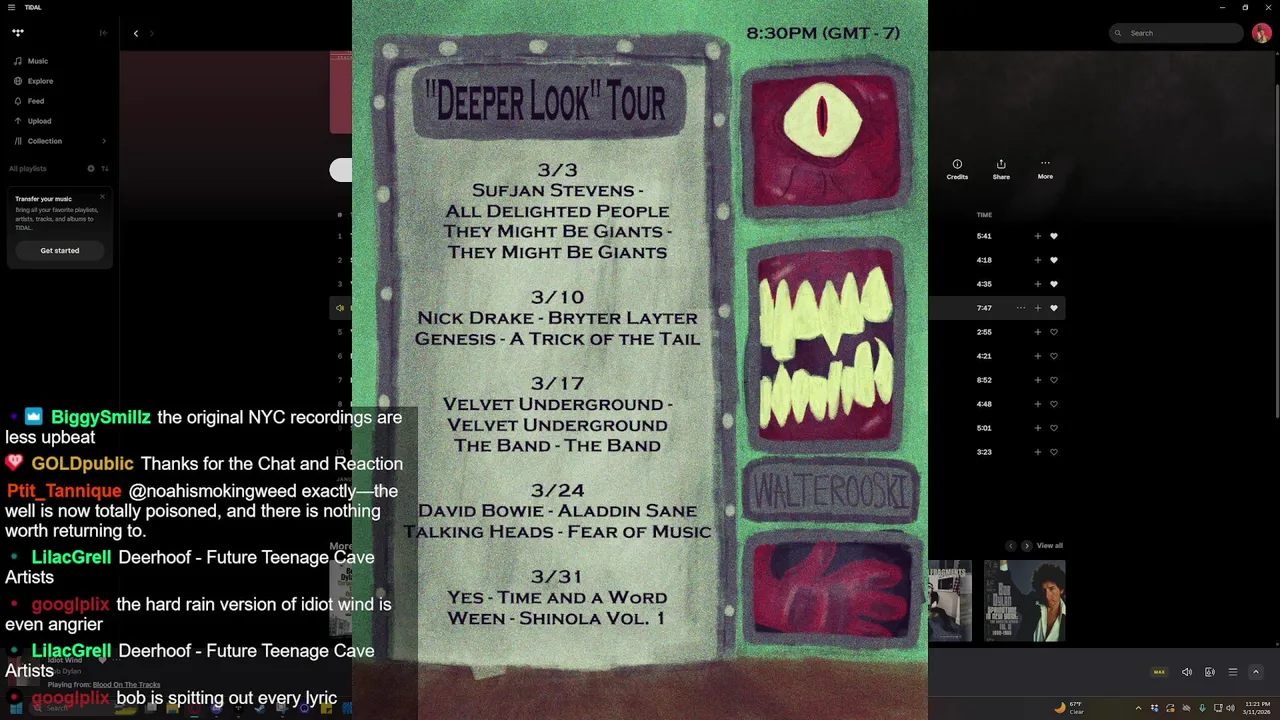 TIDAL
Search
Music
Explore
Feed
Upload
Collection
All playlists
Transfer your music
Bring all your favorite playlists,
artists, tracks, and albums to
TIDAL.
Get started
8:30PM (GMT - 7)
"DEEPER LOOK" TOUR
3/3
SUFJAN STEVENS -
ALL DELIGHTED PEOPLE
THEY MIGHT BE GIANTS -
THEY MIGHT BE GIANTS
3/10
NICK DRAKE - BRYTER LAYTER
GENESIS - A TRICK OF THE TAIL
3/17
VELVET UNDERGROUND -
VELVET UNDERGROUND
THE BAND - THE BAND
3/24
DAVID BOWIE - ALADDIN SANE
TALKING HEADS - FEAR OF MUSIC
3/31
YES - TIME AND A WORD
WEEN - SHINOLA VOL. 1
WALTEROOSKI
Credits
Share
More
#
TIME
1
5:41
2
4:18
3
4:35
7:47
5
2:55
6
4:21
7
8:52
8
4:48
5:01
3:23
More
View all
FRAGMENTS
BOB
DYLAN
SPRINGTIME
IN NEW YORK
BiggySmillz the original NYC recordings are
less upbeat
GOLDpublic Thanks for the Chat and Reaction
Ptit_Tannique @noahismokingweed exactly—the
well is now totally poisoned, and there is nothing
worth returning to.
LilacGrell Deerhoof - Future Teenage Cave
Artists
googlplix the hard rain version of idiot wind is
even angrier
LilacGrell Deerhoof - Future Teenage Cave
Artists
googlplix bob is spitting out every lyric
Idiot Wind
Bob Dylan
Playing from: Blood On The Tracks
MAX
Search
67°F
Clear
11:21 PM
3/11/2026